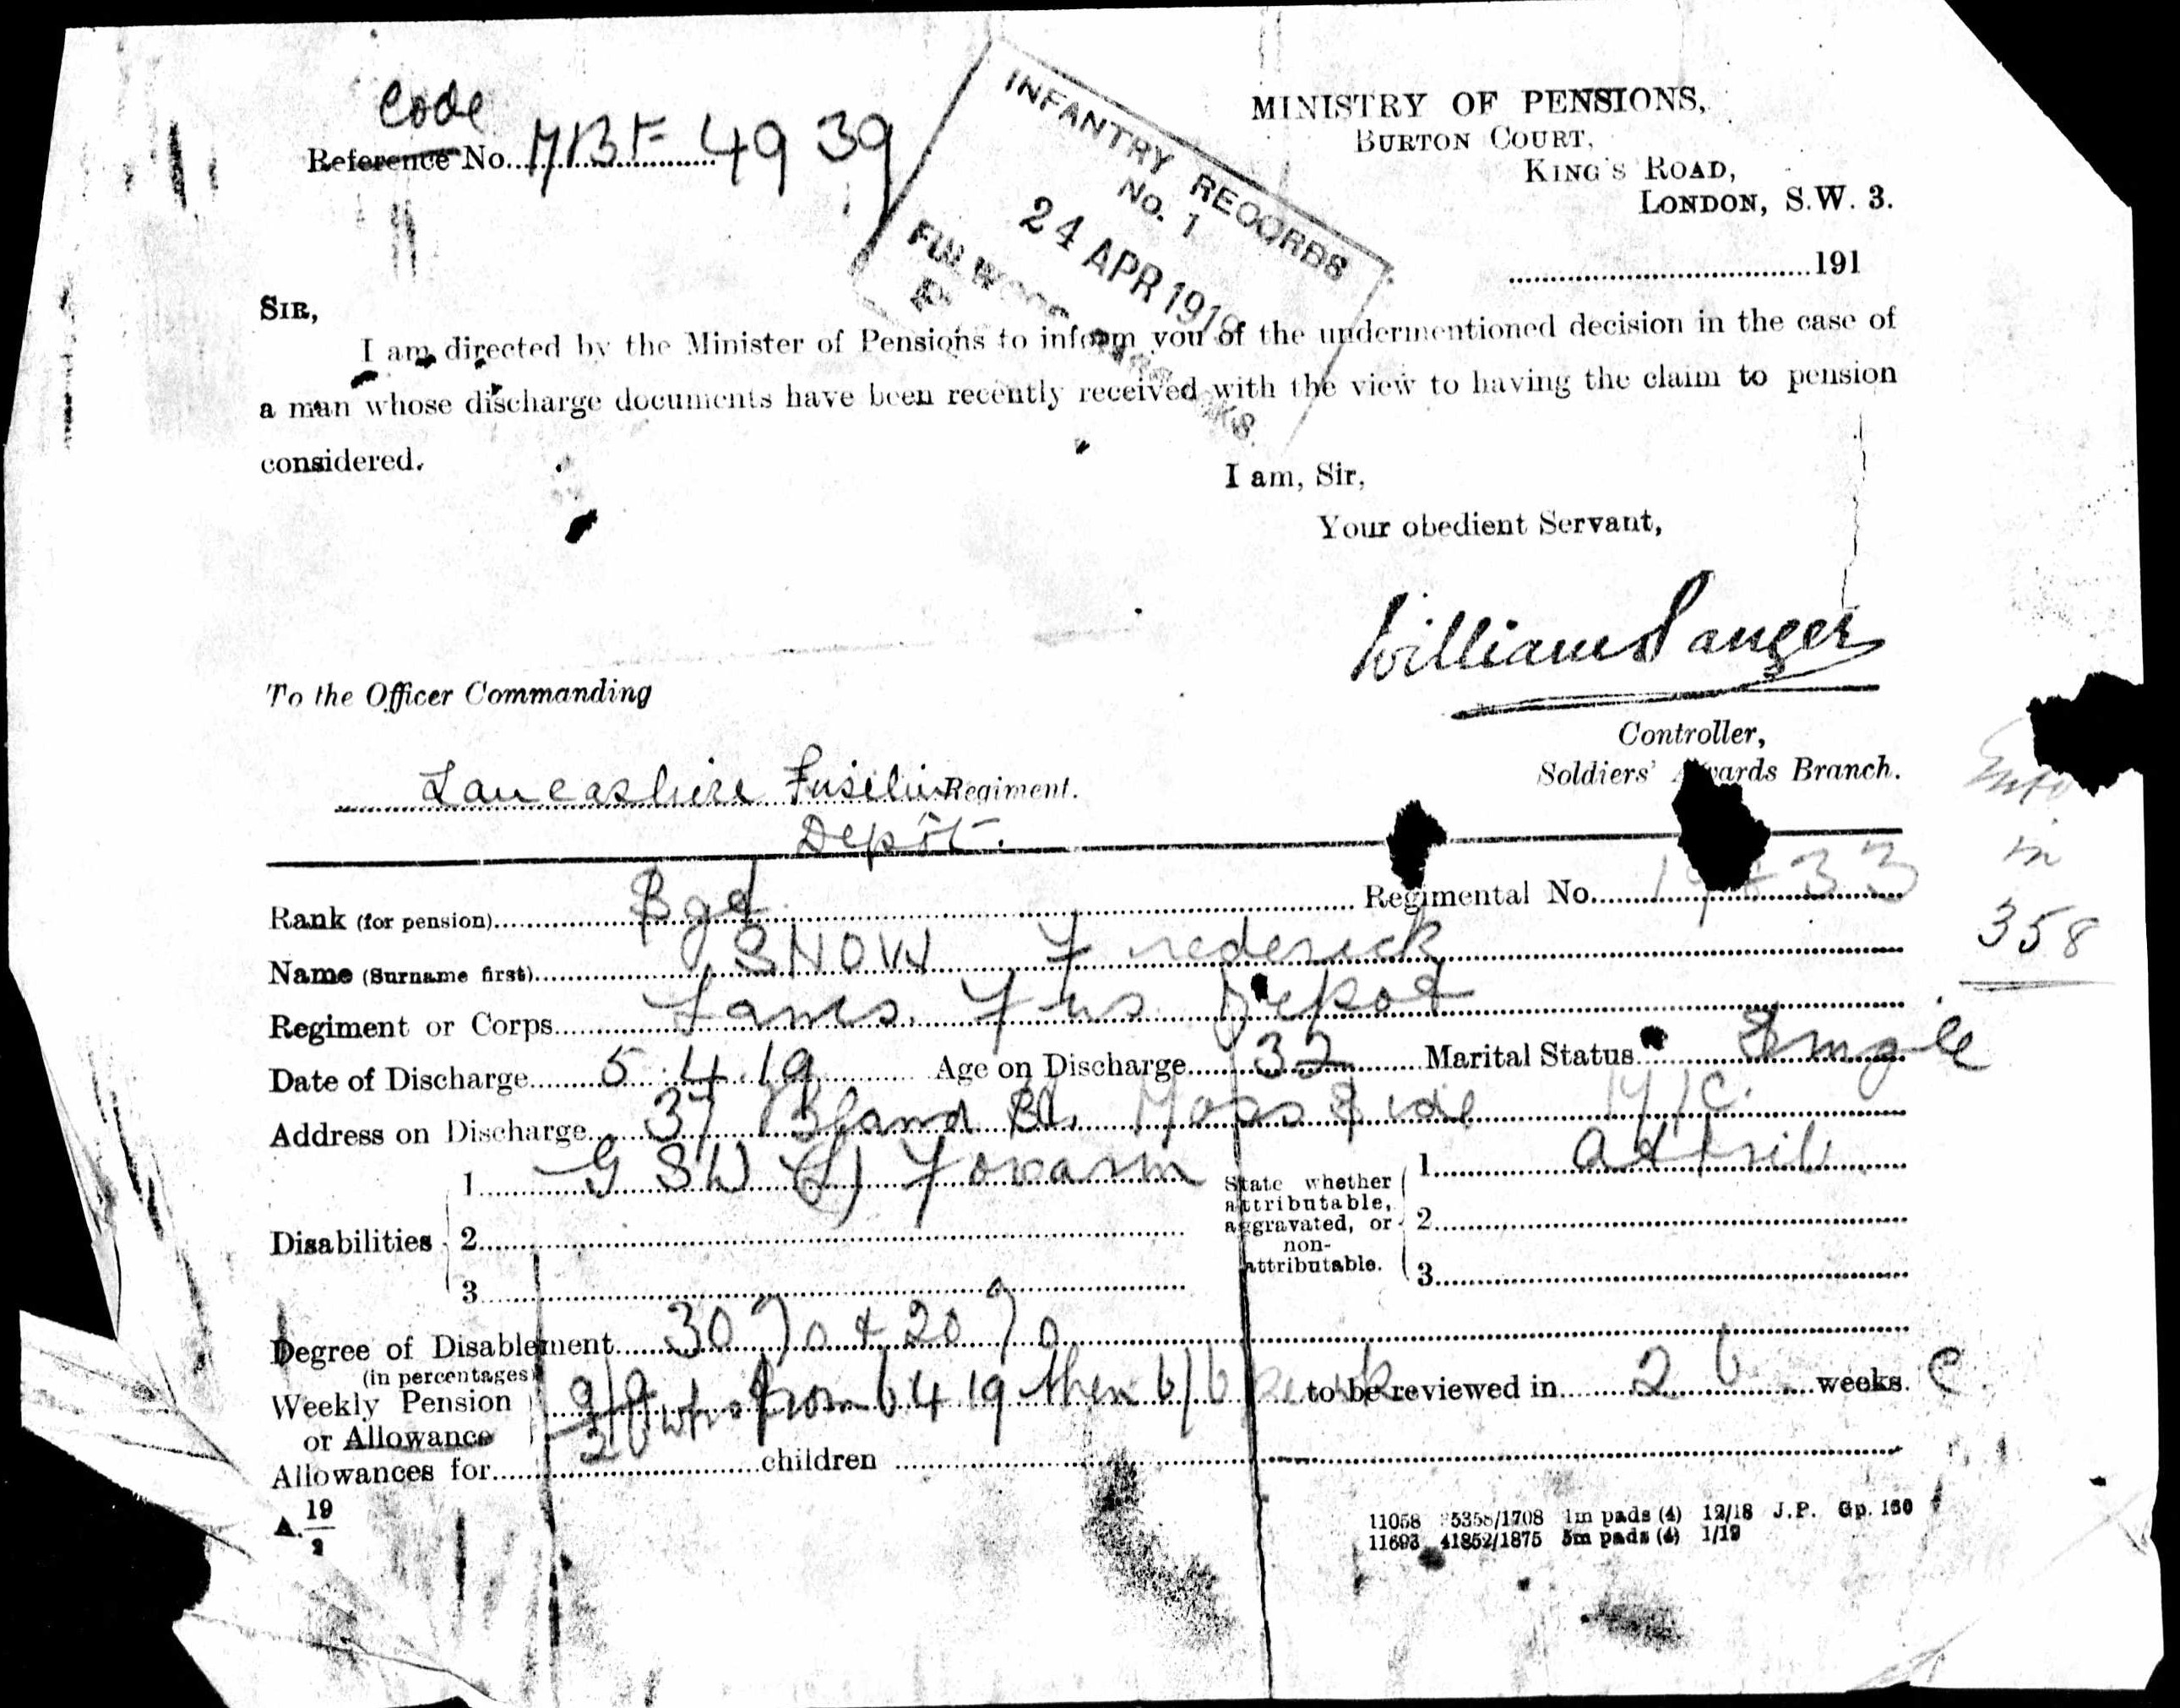 Code
Reference No. MBF 4939
INFANTRY RECORDS
No. 1
24 APR 1919
FULWOOD BARRACKS
MINISTRY OF PENSIONS,
BURTON COURT,
KING'S ROAD,
LONDON, S.W. 3.
191
SIR,
I am directed by the Minister of Pensions to inform you of the undermentioned decision in the case of
a man whose discharge documents have been recently received with the view to having the claim to pension
considered.
I am, Sir,
Your obedient Servant,
William Sanger
To the Officer Commanding
Controller,
Soldiers' Awards Branch.
Lancashire Fusiliers Regiment.
Depôt.
Rank (for pension) Regimental No.
Name (Surname first) SNOW Frederick
Regiment or Corps Lancs. Fus Depot
Date of Discharge 5.4.19 Age on Discharge 32 Marital Status Single
Address on Discharge 37 Bland St. Moss Side M/C.
Disabilities 1 G S W (L) Forearm
2
3
State whether attributable, aggravated, or non-attributable.
1
2
3
Degree of Disablement 30% & 20%
(in percentages)
Weekly Pension or Allowance from 6 4 19 then 6/6 to be reviewed in 26 weeks. C
Allowances for children
A. 19/2
in
358
11058 1m pads (4) 12/18 J.P. Gp. 160
11693 41852/1875 5m pads (4) 1/19